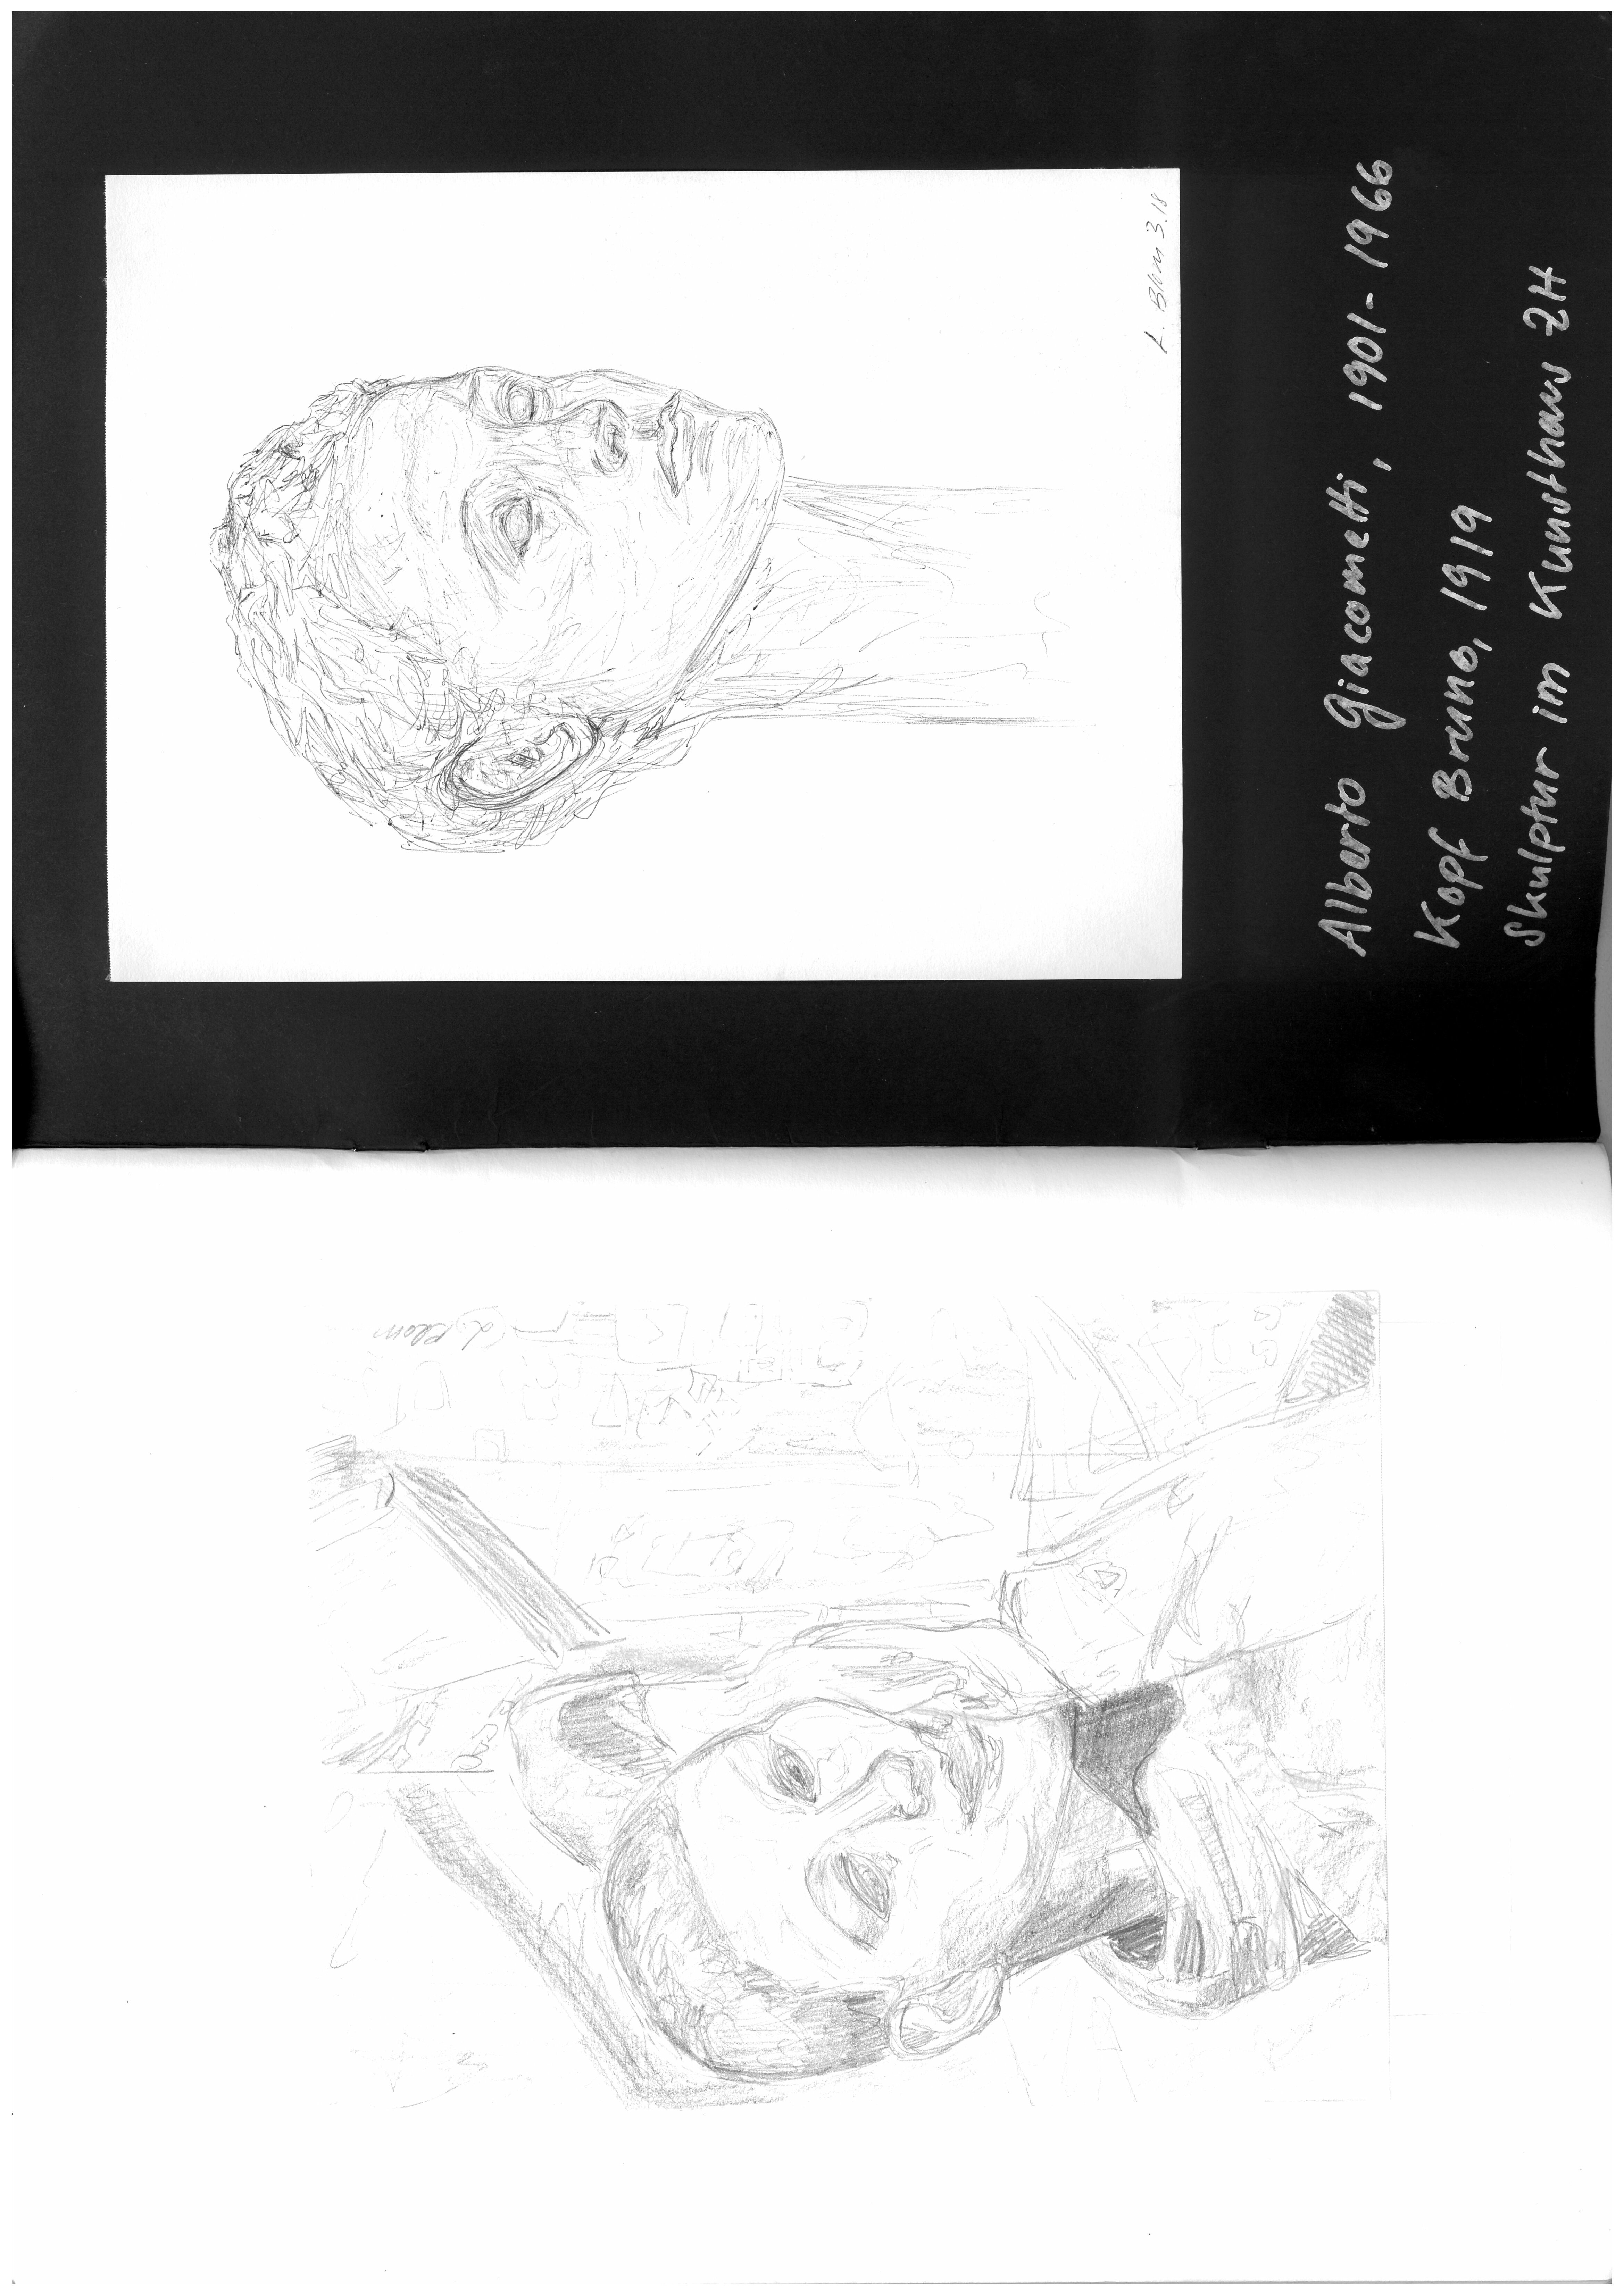 L Blom
L. Blom 3.18
Alberto Giacometti, 1901-1966
Kopf Bruno, 1919
Skulptur im Kunsthaus ZH